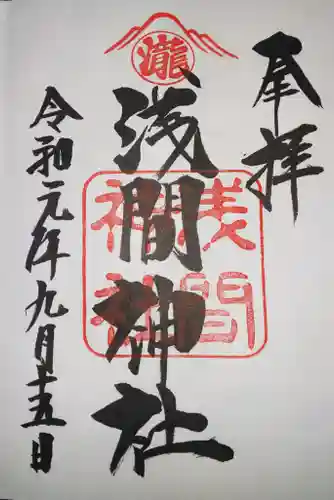 奉拝
瀧
浅間神社
浅間
神社
令和元年九月十五日